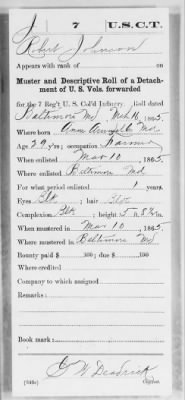 J 7 U.S.C.T.
Robert Johnson
Appears with rank of on
Muster and Descriptive Roll of a Detach-
ment of U. S. Vols. forwarded
for the 7 Reg't U. S. Col'd Infantry. Roll dated
Baltimore Md, Mch 16, 1865.
Where born Anne Co Md
Age 29 y'rs; occupation Farmer
When enlisted Mar 10, 1865.
Where enlisted Baltimore Md
For what period enlisted 1 years.
Eyes Blk; hair Blk
Complexion Blk; height 5 ft. 8½ in.
When mustered in Mar 10, 1865
Where mustered in Baltimore Md
Bounty paid $ 100; due $ 100
Where credited
Company to which assigned
Remarks:
Book mark:
G W Deadrick
Copyist.